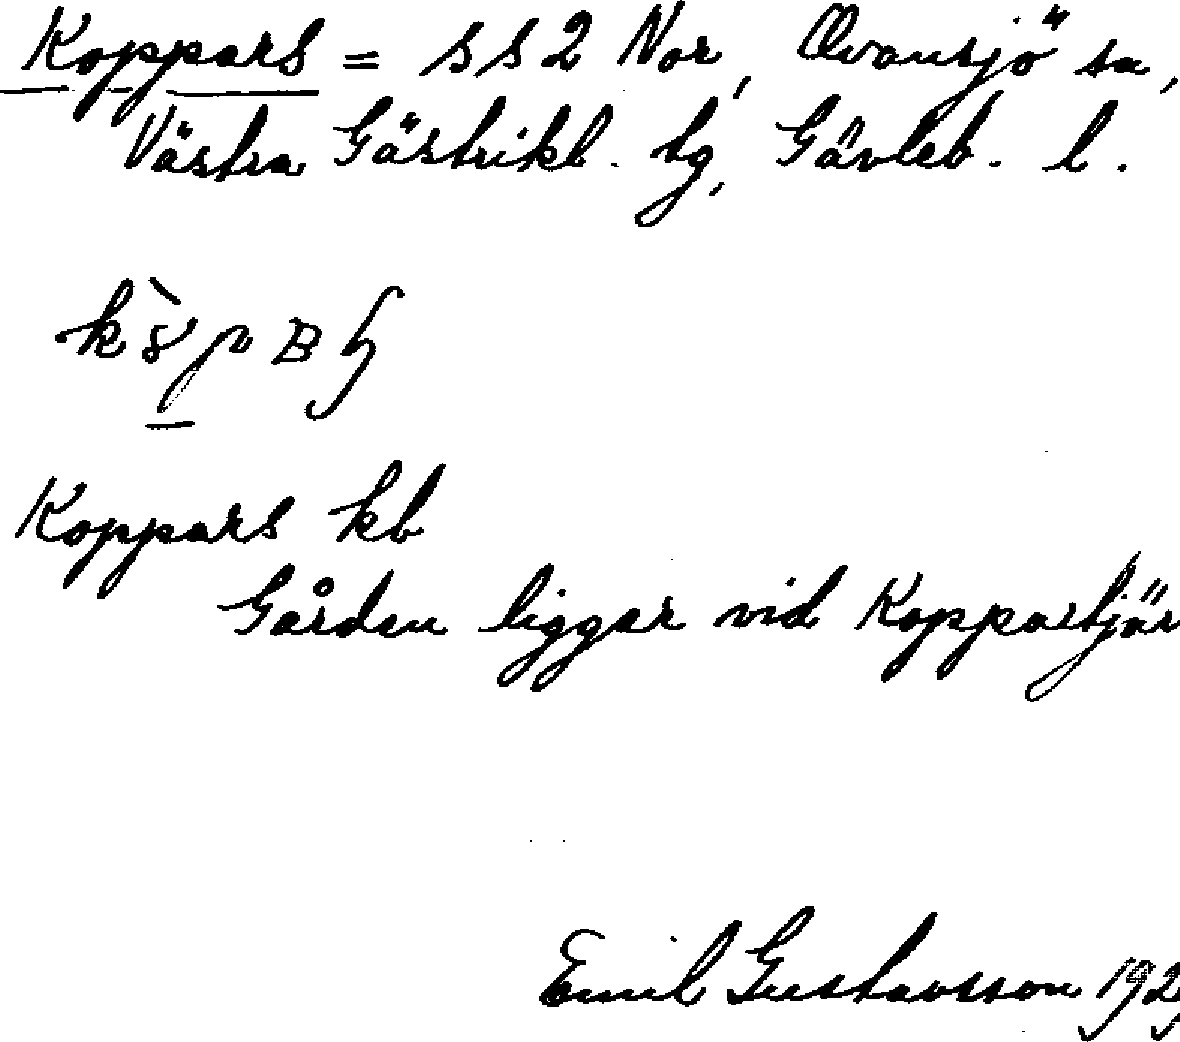 Koppars = s s 2 Nor, Ovansjö sn,
Västra Gästrikl. tg, Gävleb. l.
Koppars kb
Gården liggar vid Koppartjär
Emil Gustavsson 192